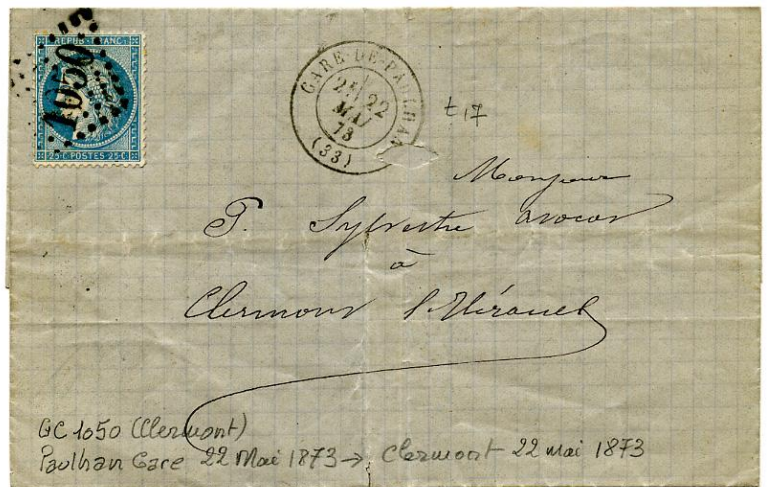 REPUB·FRANC·
1050
25·C·POSTES·25·C·
GARE-DE-PAULHAN
2E 22
MAI
73
(33)
t 17
Monsieur
P. Sylvestre avocat
à
Clermont l'Hérault
GC 1050 (Clermont)
Paulhan Gare 22 Mai 1873 → Clermont 22 mai 1873